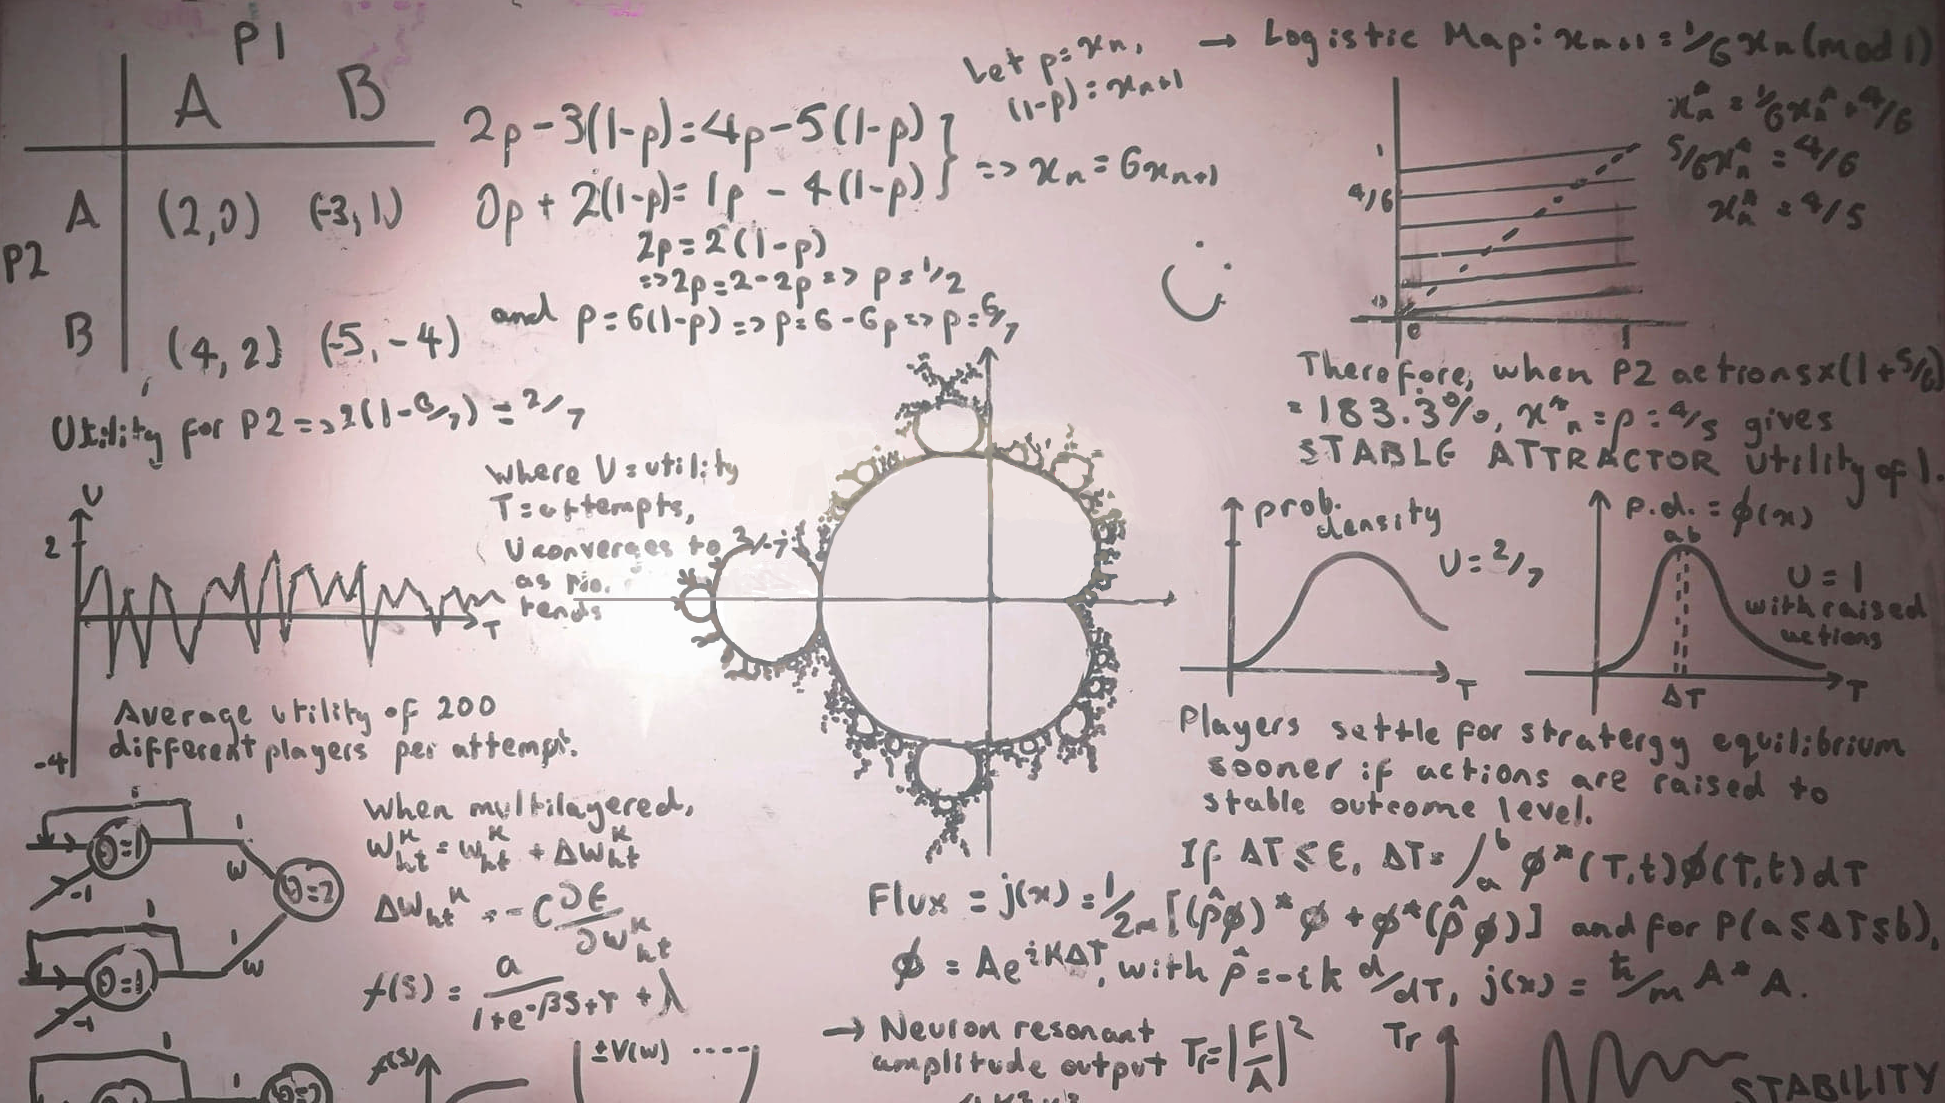 P1
A B
P2
A (2,0) (-3,1)
B (4,2) (-5,-4)
2p-3(1-p)=4p-5(1-p)
0p+2(1-p)=1p-4(1-p)
Let p=xn,
(1-p)=xn+1
=> xn=6xn+1
2p=2(1-p)
=>2p=2-2p=> p=1/2
and p=6(1-p)=>p=6-6p=>p=6/7
→ Logistic Map: xn+1=1/6xn(mod1)
1
4/6
0
0
1
x*n=1/6x*n+4/6
5/6x*n=4/6
x*n=4/5
Therefore, when P2 actionsx(1+5/6)
=183.3%, x*n=p=4/5 gives
STABLE ATTRACTOR utility of 1.
Utility for P2=>2(1-6/7)=2/7
U
2
-4
T
where U=utility
T=attempts,
U converges to
as
tends
Average utility of 200
different players per attempt.
prob.
density
U=2/7
T
p.d.=ϕ(x)
ab
U=1
with raised
actions
ΔT
T
Players settle for stratergy equilibrium
sooner if actions are raised to
stable outcome level.
If ΔT≤ε, ΔT=∫ab ϕ*(T,t)ϕ(T,t)dT
Flux = j(x)=1/2m[(p̂ϕ)*ϕ+ϕ*(p̂ϕ)] and for P(a≤ΔT≤b),
ϕ=Ae^iKΔT, with p̂=-ik d/dT, j(x)=ħ/m A*A.
When multilayered,
wht^k=wht^k+Δwht^k
Δwht^k=-C∂E/∂wht^k
f(s)=a/1+e^-βs+γ+λ
θ=1
-1
1
w
θ=2
θ=1
-1
1
w
f(s)
±V(w)
→ Neuron resonant
amplitude output Tr=|F/A|²
Tr
STABILITY